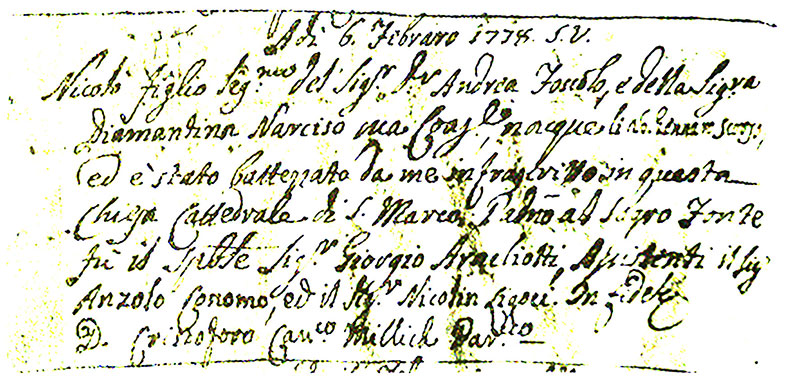 Adì 6. Febraro 1778. S.V.
Nicolò figlio leg.mo del Sig.r D.r Andrea Foscolo, e della Sig.ra
Diamantina Narciso sua nacque li
ed è stato battezzato da me infrascritto in questa
Chiesa Cattedrale di S. Marco, al Sagro Fonte
fù il Sig.r Giorgio Assistenti il Sig
Anzolo Conomo, ed il Sig.r Nicolin In fede
D. Cristoforo Can.co Millich